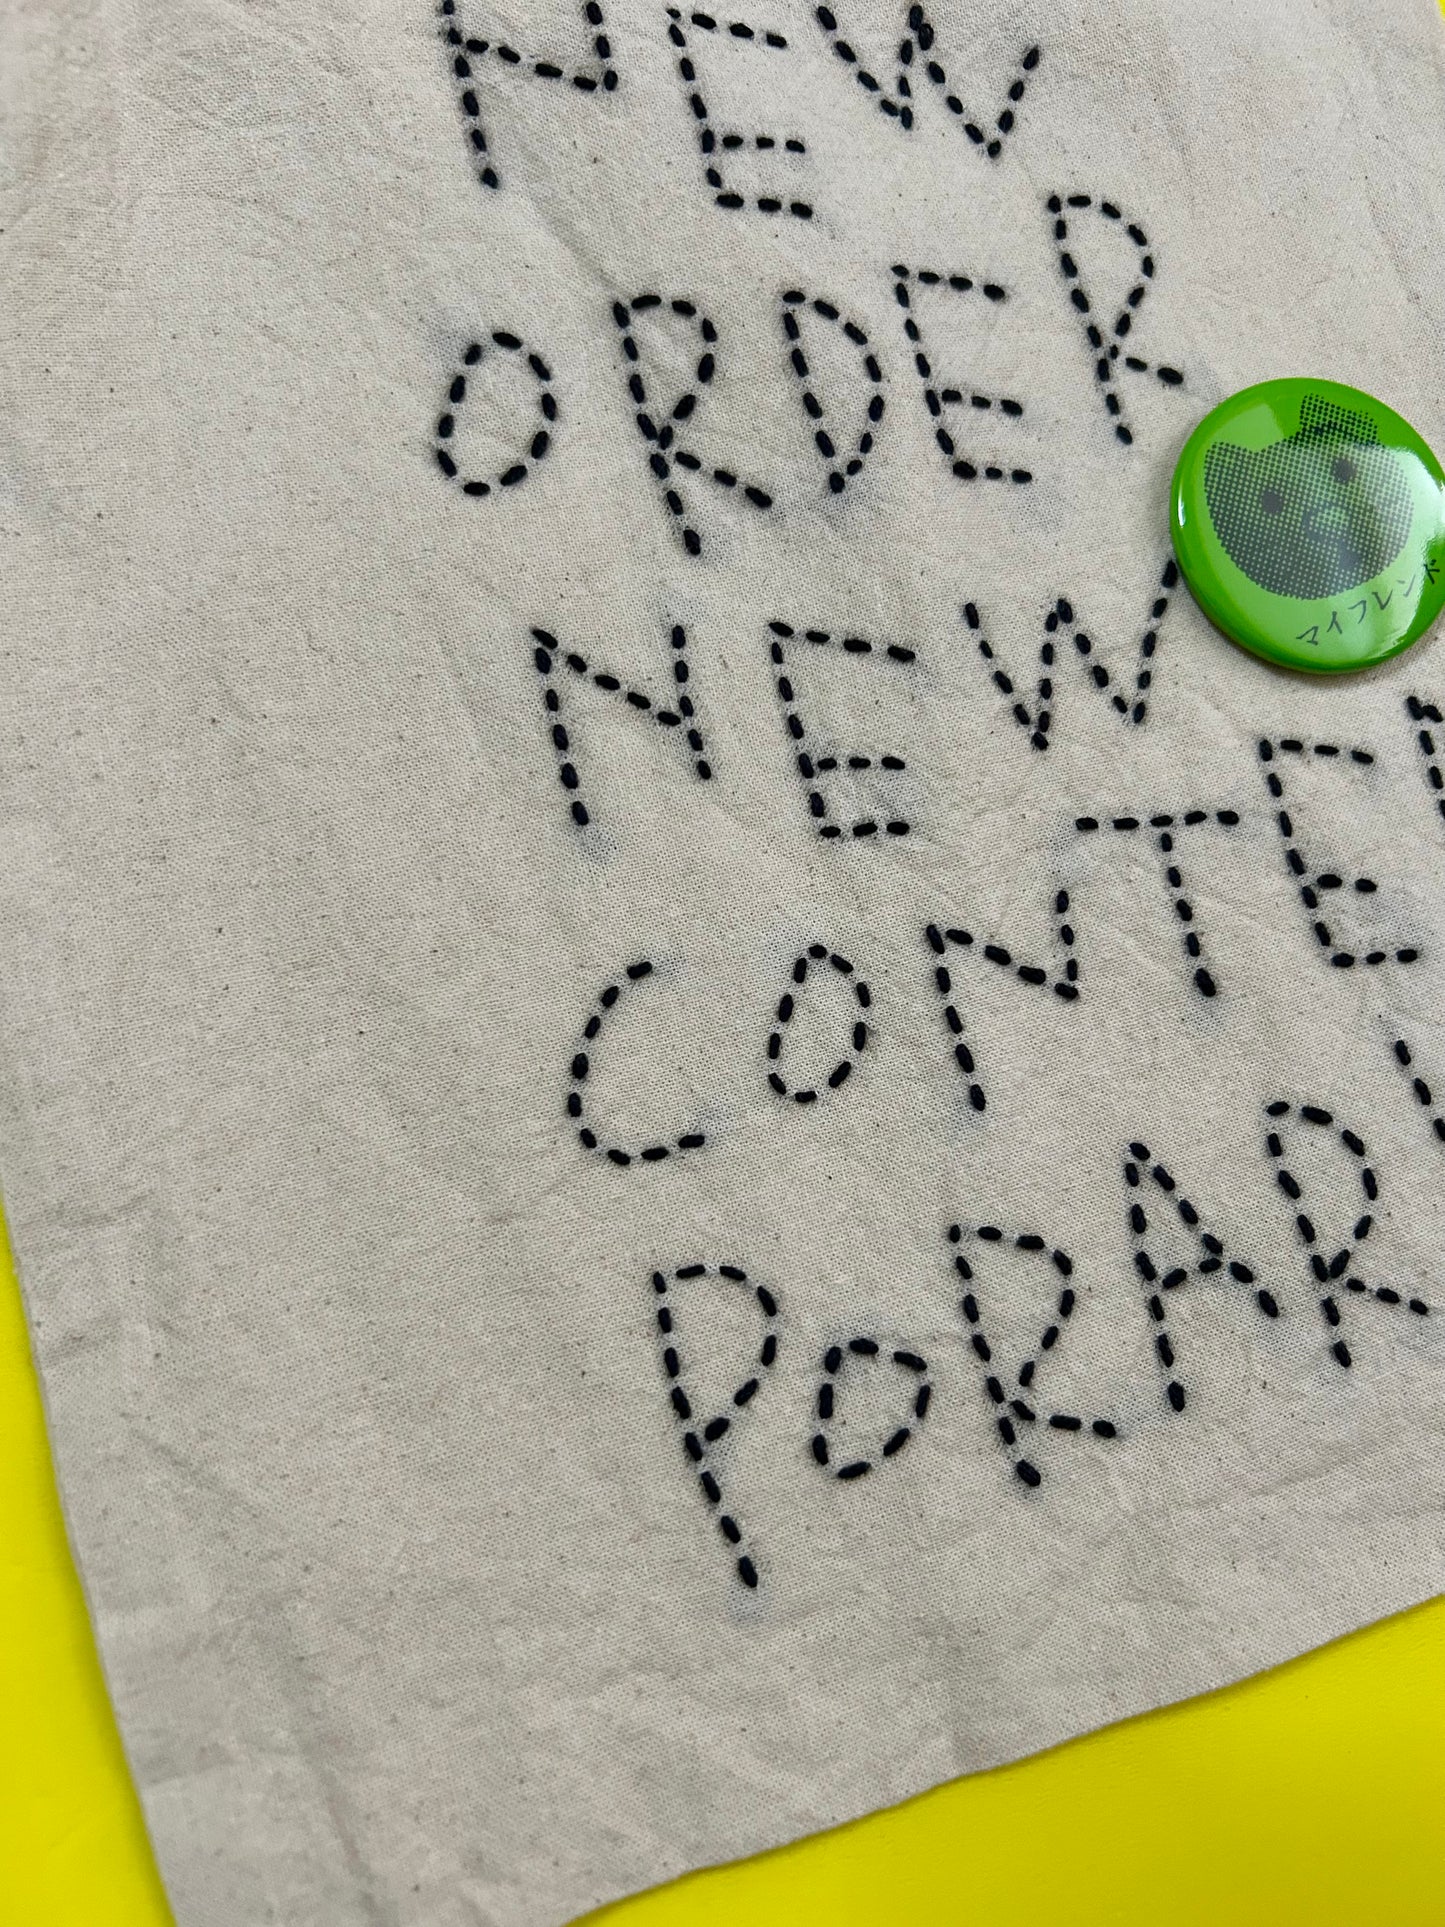 NEW
ORDER
マイフレンド
NEW
CONTEM
PORARY